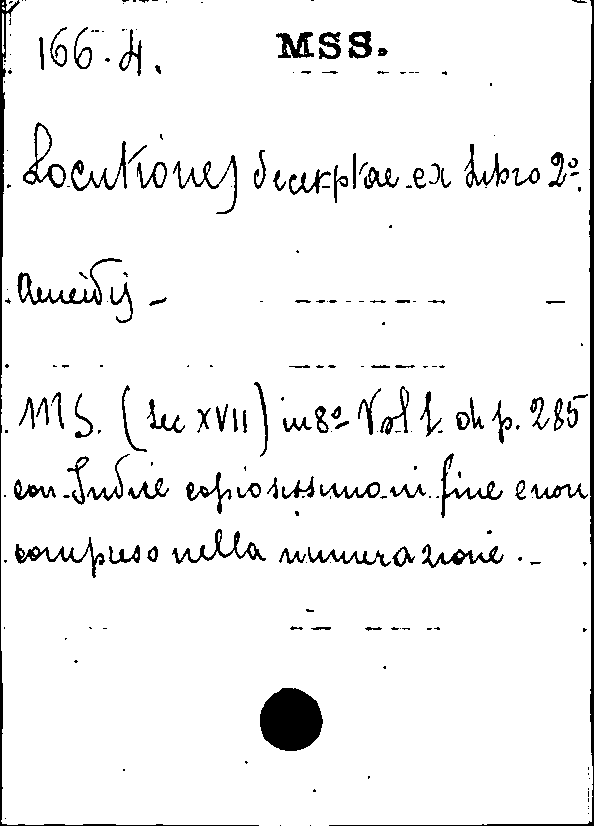 166.4. MSS.
Locutiones decerptae ex Libro 2º.
Aeneidis -
MS. (Sec XVII) in 8º Vol 1. di p. 285
con Indice copiosissimo in fine e non
compreso nella numerazione. -